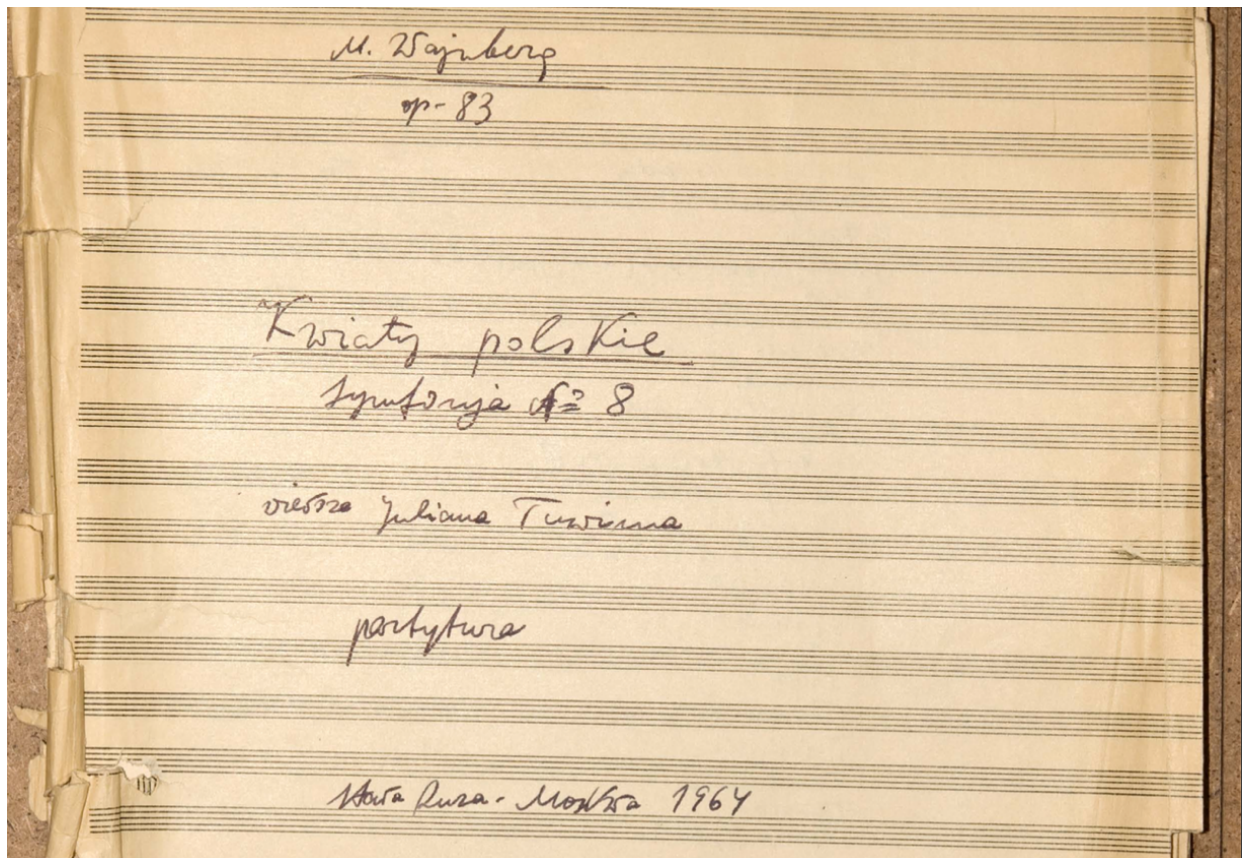 M. Wajnberg
op. 83
"Kwiaty polskie
Symfonija № 8
wiersze Juliana Tuwima
partytura
Stara Ruza - Moskwa 1964